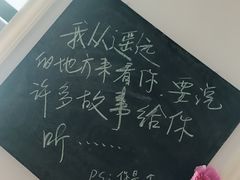 我从遥远
的地方来看你 要说
许多故事给你
听……
PS: